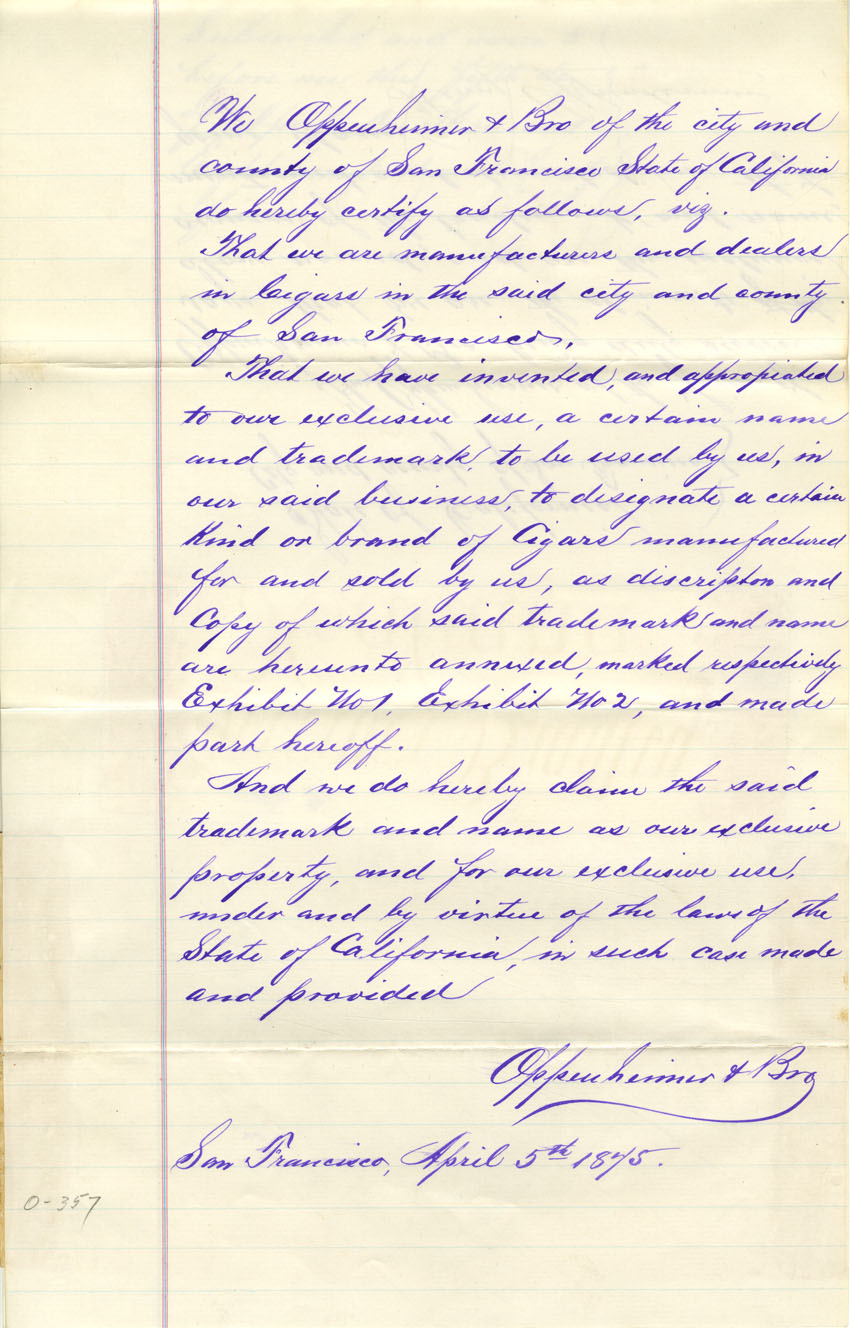 We Oppenheimer & Bro of the city and
county of San Francisco State of California
do hereby certify as follows, viz.
That we are manufacturers and dealers
in Cigars in the said city and county
of San Francisco,
That we have invented, and appropiated
to our exclusive use, a certain name
and trademark, to be used by us, in
our said business, to designate a certain
Kind or brand of Cigars manufactured
for and sold by us, as discripton and
Copy of which said trademark and name
are hereunto annexed, marked respectively
Exhibit No 1, Exhibit No 2, and made
part hereoff.
And we do hereby claim the said
trademark and name as our exclusive
property, and for our exclusive use,
under and by virtue of the laws of the
State of California, in such case made
and provided
Oppenheimer & Bro
San Francisco, April 5th 1875.
O-357